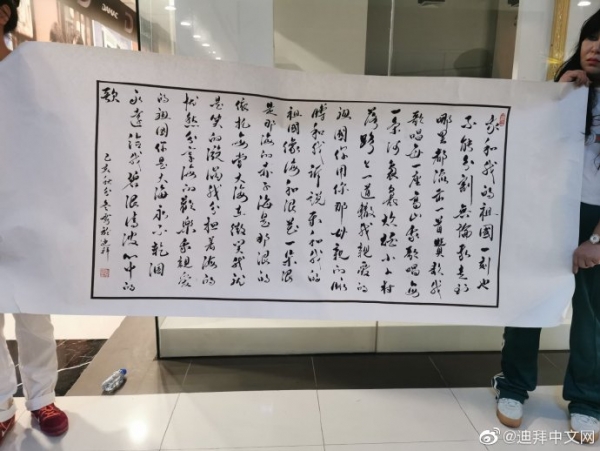 我和我的祖国一刻也
不能分割无论我走到
哪里都流出一首赞歌我
歌唱每一座高山我歌唱每
一条河袅袅炊烟小小村
落路上一道辙我亲爱的
祖国你用你那母亲的脉
搏和我诉说我和我的
祖国像海和浪花一朵浪
是那海的赤子海是那浪的
依托每当大海在微笑我就
是笑的漩涡我分担着海的
忧愁分享海的欢乐我亲爱
的祖国你是大海永不乾涸
永远给我碧浪清波心中的
歌
己亥秋分书於迪拜
@迪拜中文网